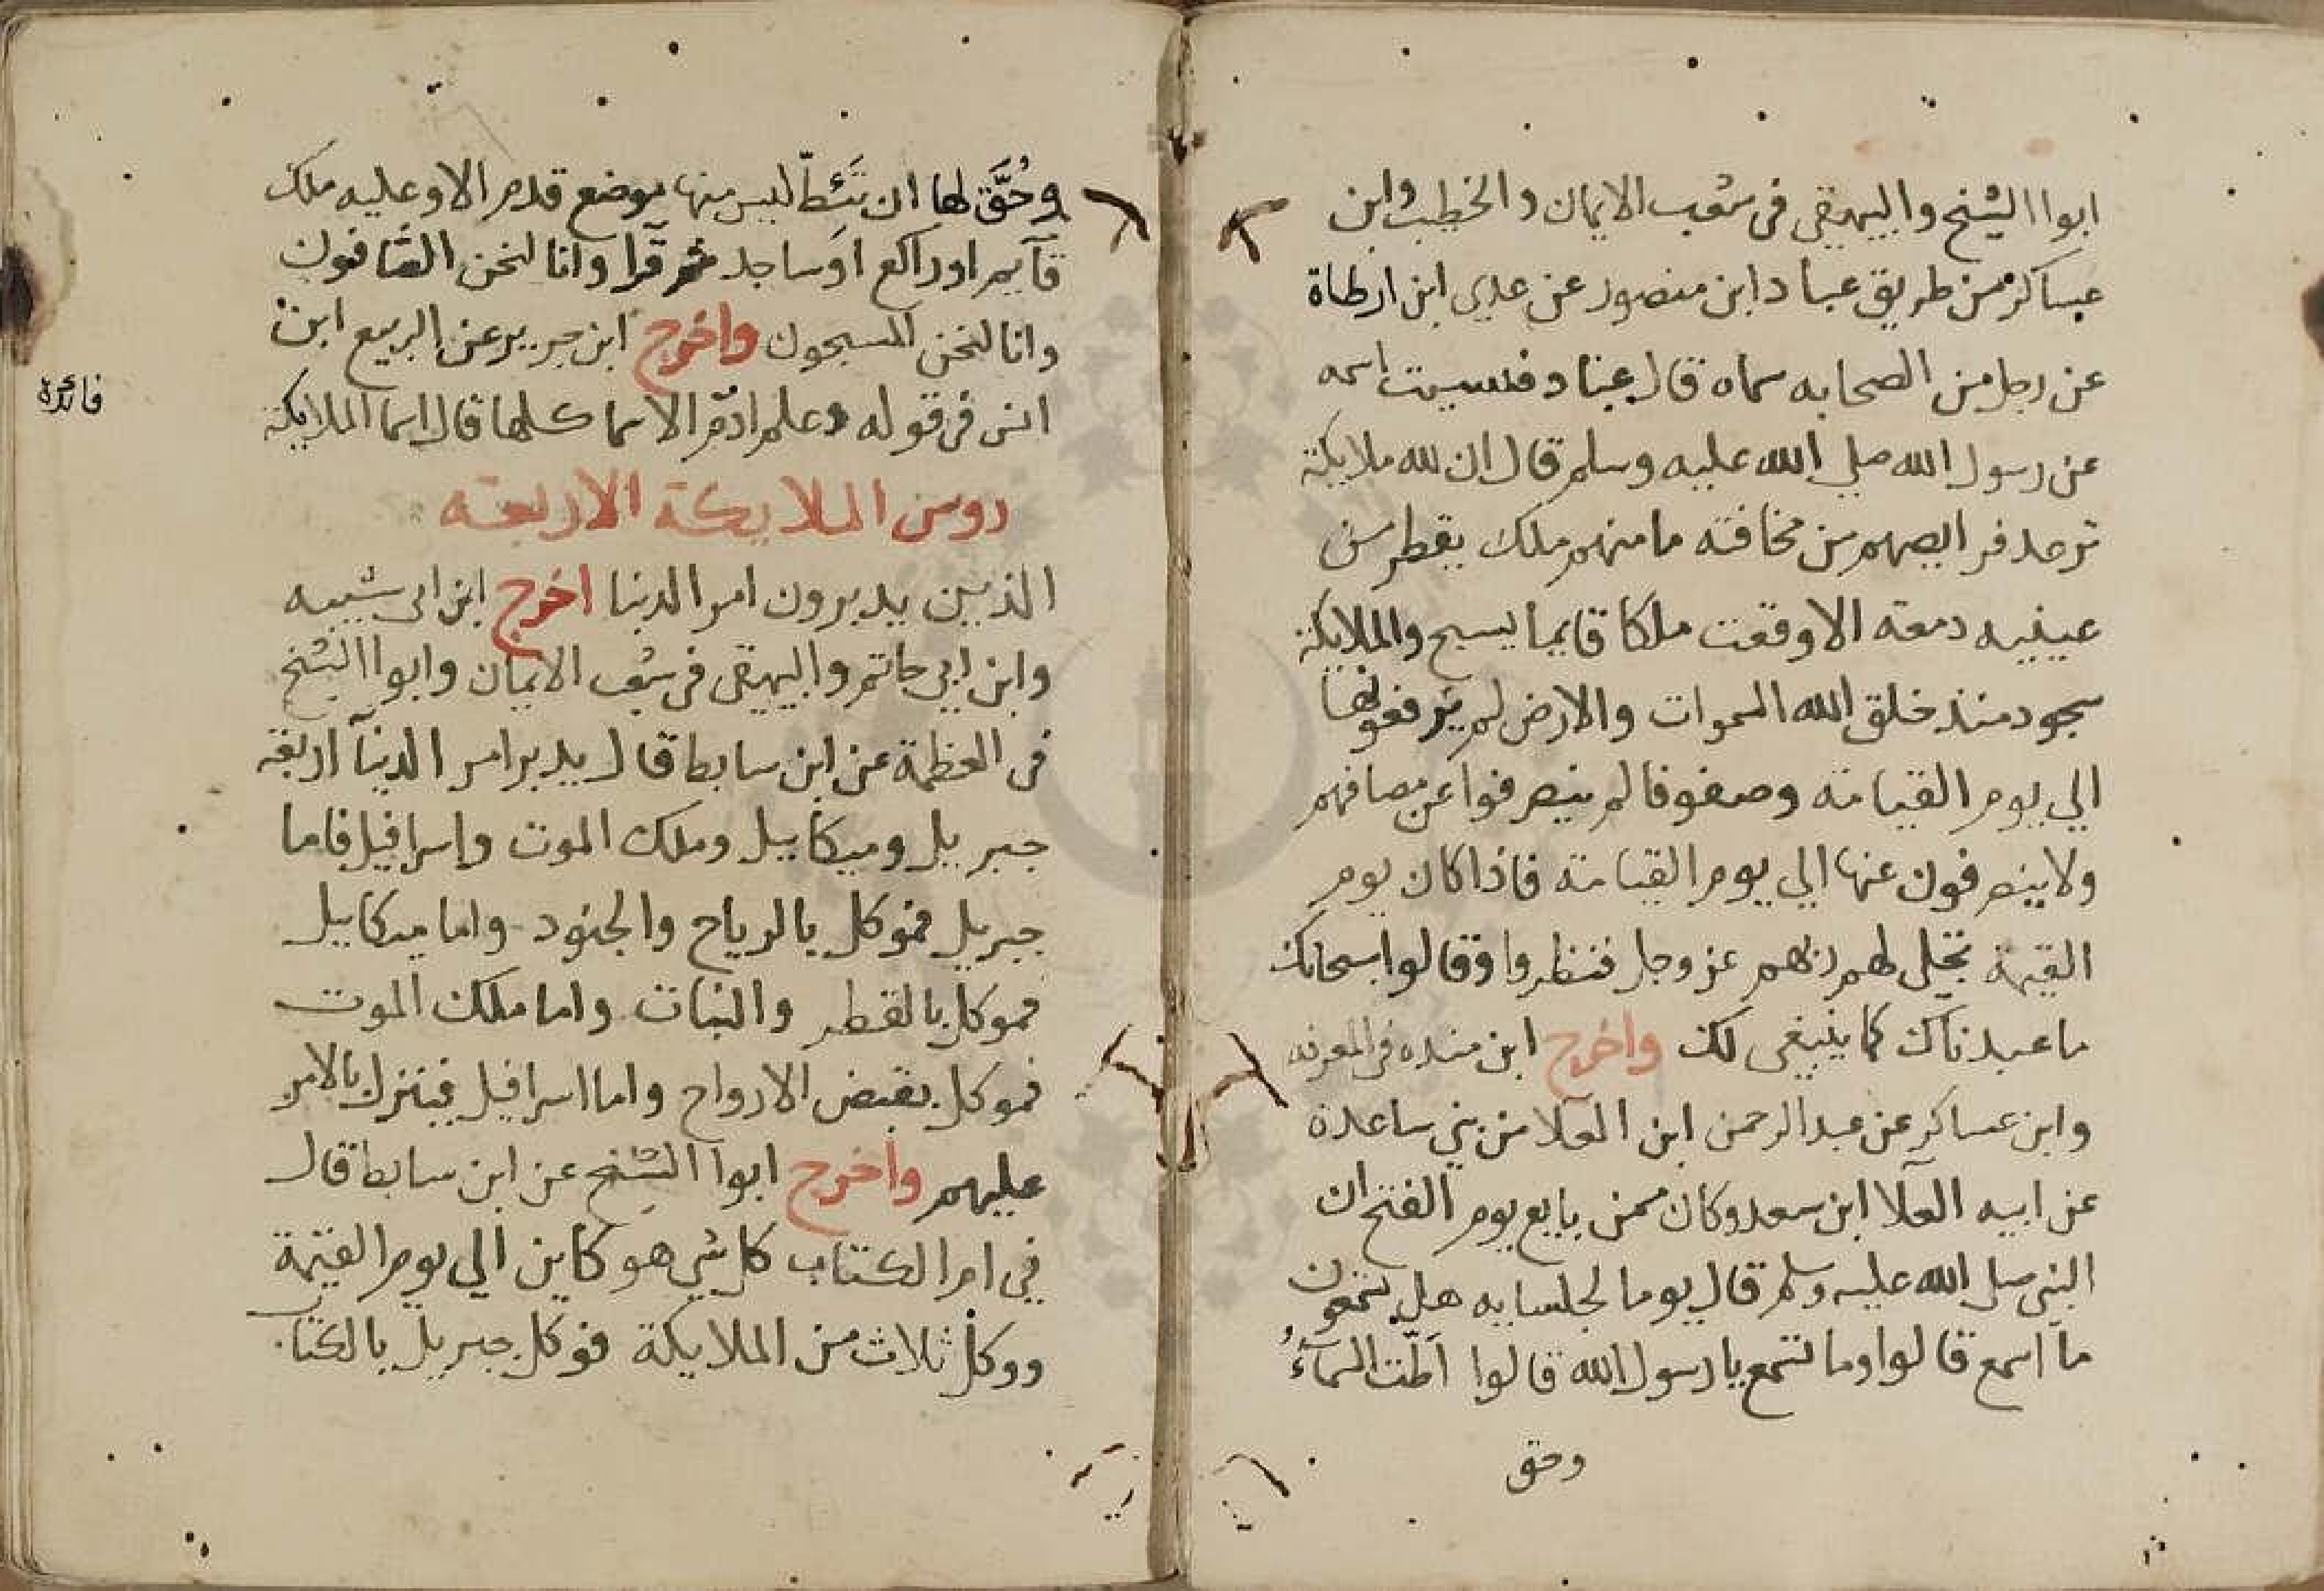 ابوا الشيخ والبيهقي في شعب الايمان والخطيب وابن
عساكر من طريق عباد ابن منصور عن عدي ابن ارطاة
عن رجل من الصحابه سماه قال عباد فنسيت اسمه
عن رسول الله صلي الله عليه وسلم قال ان لله ملايكة
ترعد فرايصهم من مخافته ما منهم ملك يقطر من
عينيه دمعة الا وقعت ملكا قايما يسبح والملايكة
سجود منذ خلق الله السموات والارض لم يرفعونها
الي يوم القيامة وصفوفا لم ينصرفوا عن مصافهم
ولا ينصرفون عنها الي يوم القيامة فاذا كان يوم
القيمة تجلى لهم ربهم عز وجل فنظروا وقالوا سبحانك
ما عبدناك كما ينبغي لك واخرج ابن منده في المعرفه
وابن عساكر عن عبد الرحمن ابن العلا من بني ساعدة
عن ابيه العلا ابن سعد وكان ممن بايع يوم الفتح ان
النبي صلى الله عليه وسلم قال يوما لجلسايه هل تسمعون
ما اسمع قالوا وما تسمع يا رسول الله قالوا اَطَّت السمآءُ
وحق
وحُقَّ لها ان تَئِطّ ليس منها موضع قدم الا وعليه ملك
قآيم او راكع او ساجد ثم قرا وانا لنحن الصافون
وانا لنحن المسبحون واخرج ابن جرير عن الربيع ابن
انس في قوله وعلم ادم الاسما كلها قال اسما الملايكة
فائدة
روس الملايكة الاربعة
الذيين يدبرون امر الدنيا اخرج ابن ابي شيبه
وابن ابي حاتم والبيهقي في شعب الايمان وابوا الشيخ
في العظمة عن ابن سابط قال يدبر امر الدنيآ اربعة
جبريل وميكاييل وملك الموت واسرافيل فاما
جبريل فموكل بالرياح والجنود واما ميكاييل
فموكل بالقطر والنبات واما ملك الموت
فموكل بقبض الارواح واما اسرافيل فينزل بالامر
عليهم واخرج ابوا الشيخ عن ابن سابط قال
في ام الكتاب كل شي هو كاين الي يوم القيمة
ووكل ثلاث من الملايكة فوكل جبريل بالكتاب